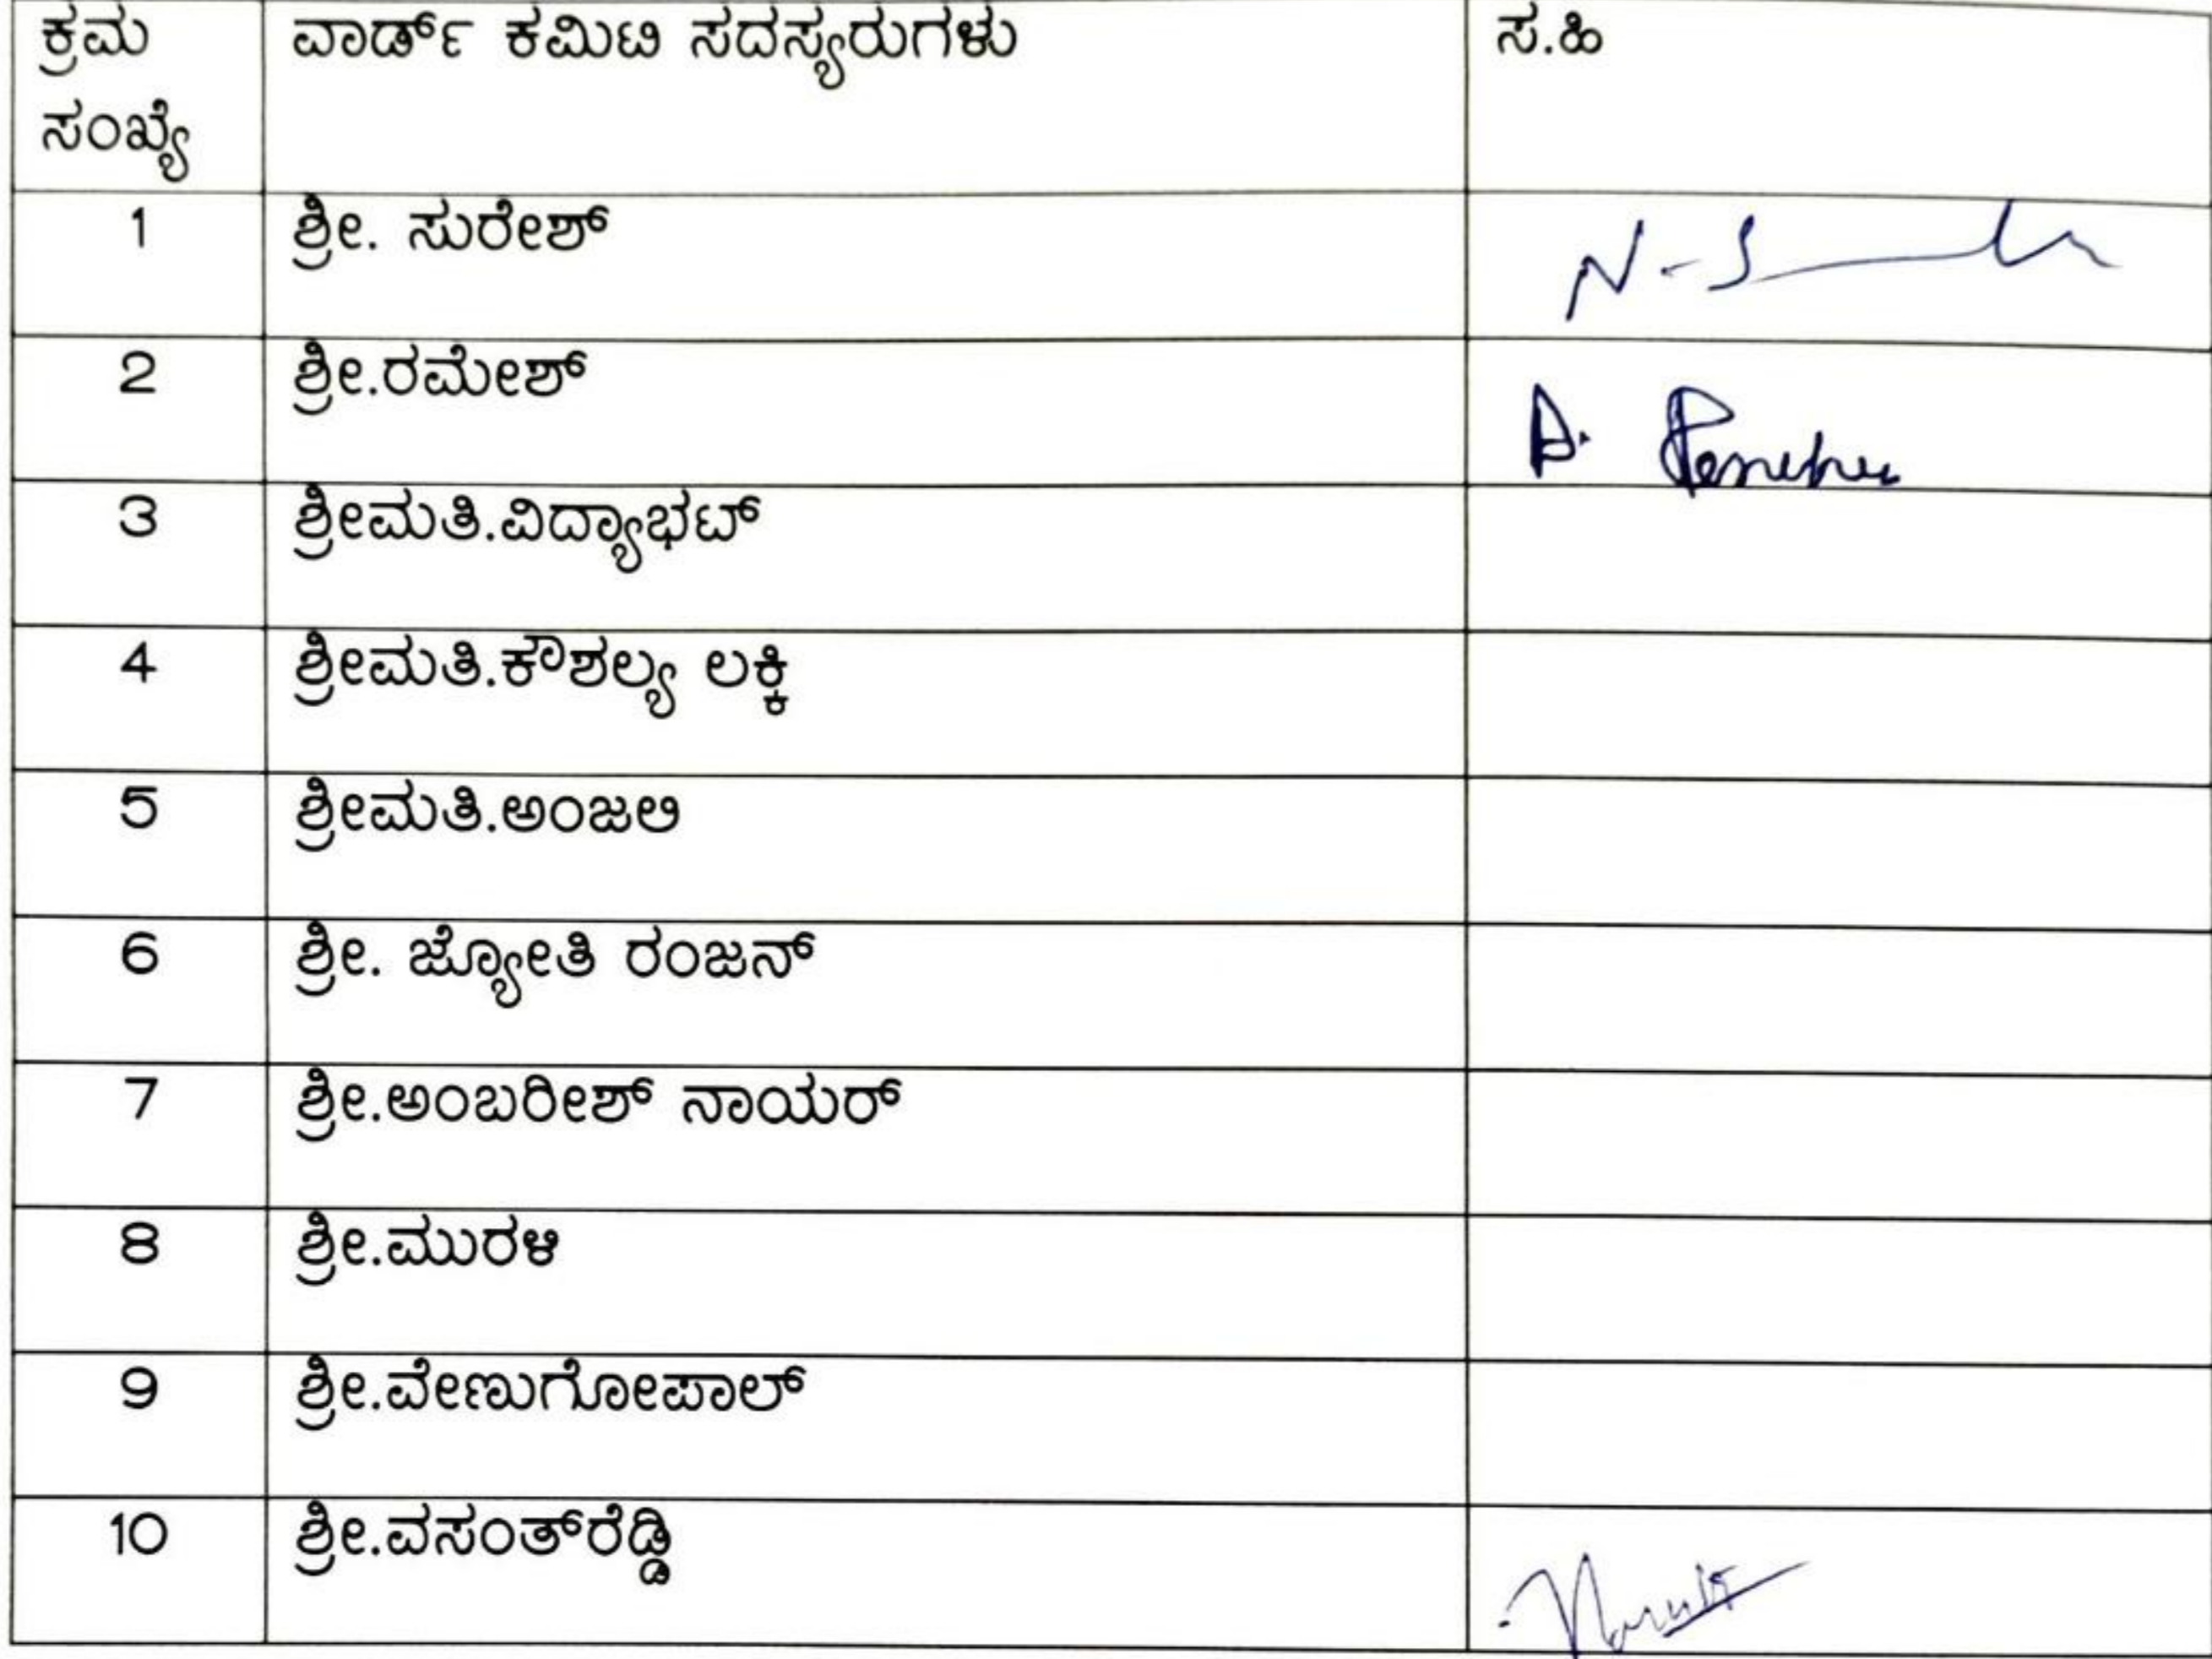 ಕ್ರಮ ಸಂಖ್ಯೆ ವಾರ್ಡ್ ಕಮಿಟಿ ಸದಸ್ಯರುಗಳು ಸ.ಹಿ
1 ಶ್ರೀ. ಸುರೇಶ್ N-S
2 ಶ್ರೀ.ರಮೇಶ್
3 ಶ್ರೀಮತಿ.ವಿದ್ಯಾಭಟ್
4 ಶ್ರೀಮತಿ.ಕೌಶಲ್ಯ ಲಕ್ಕಿ
5 ಶ್ರೀಮತಿ.ಅಂಜಲಿ
6 ಶ್ರೀ. ಜ್ಯೋತಿ ರಂಜನ್
7 ಶ್ರೀ.ಅಂಬರೀಶ್ ನಾಯರ್
8 ಶ್ರೀ.ಮುರಳಿ
9 ಶ್ರೀ.ವೇಣುಗೋಪಾಲ್
10 ಶ್ರೀ.ವಸಂತ್‌ರೆಡ್ಡಿ